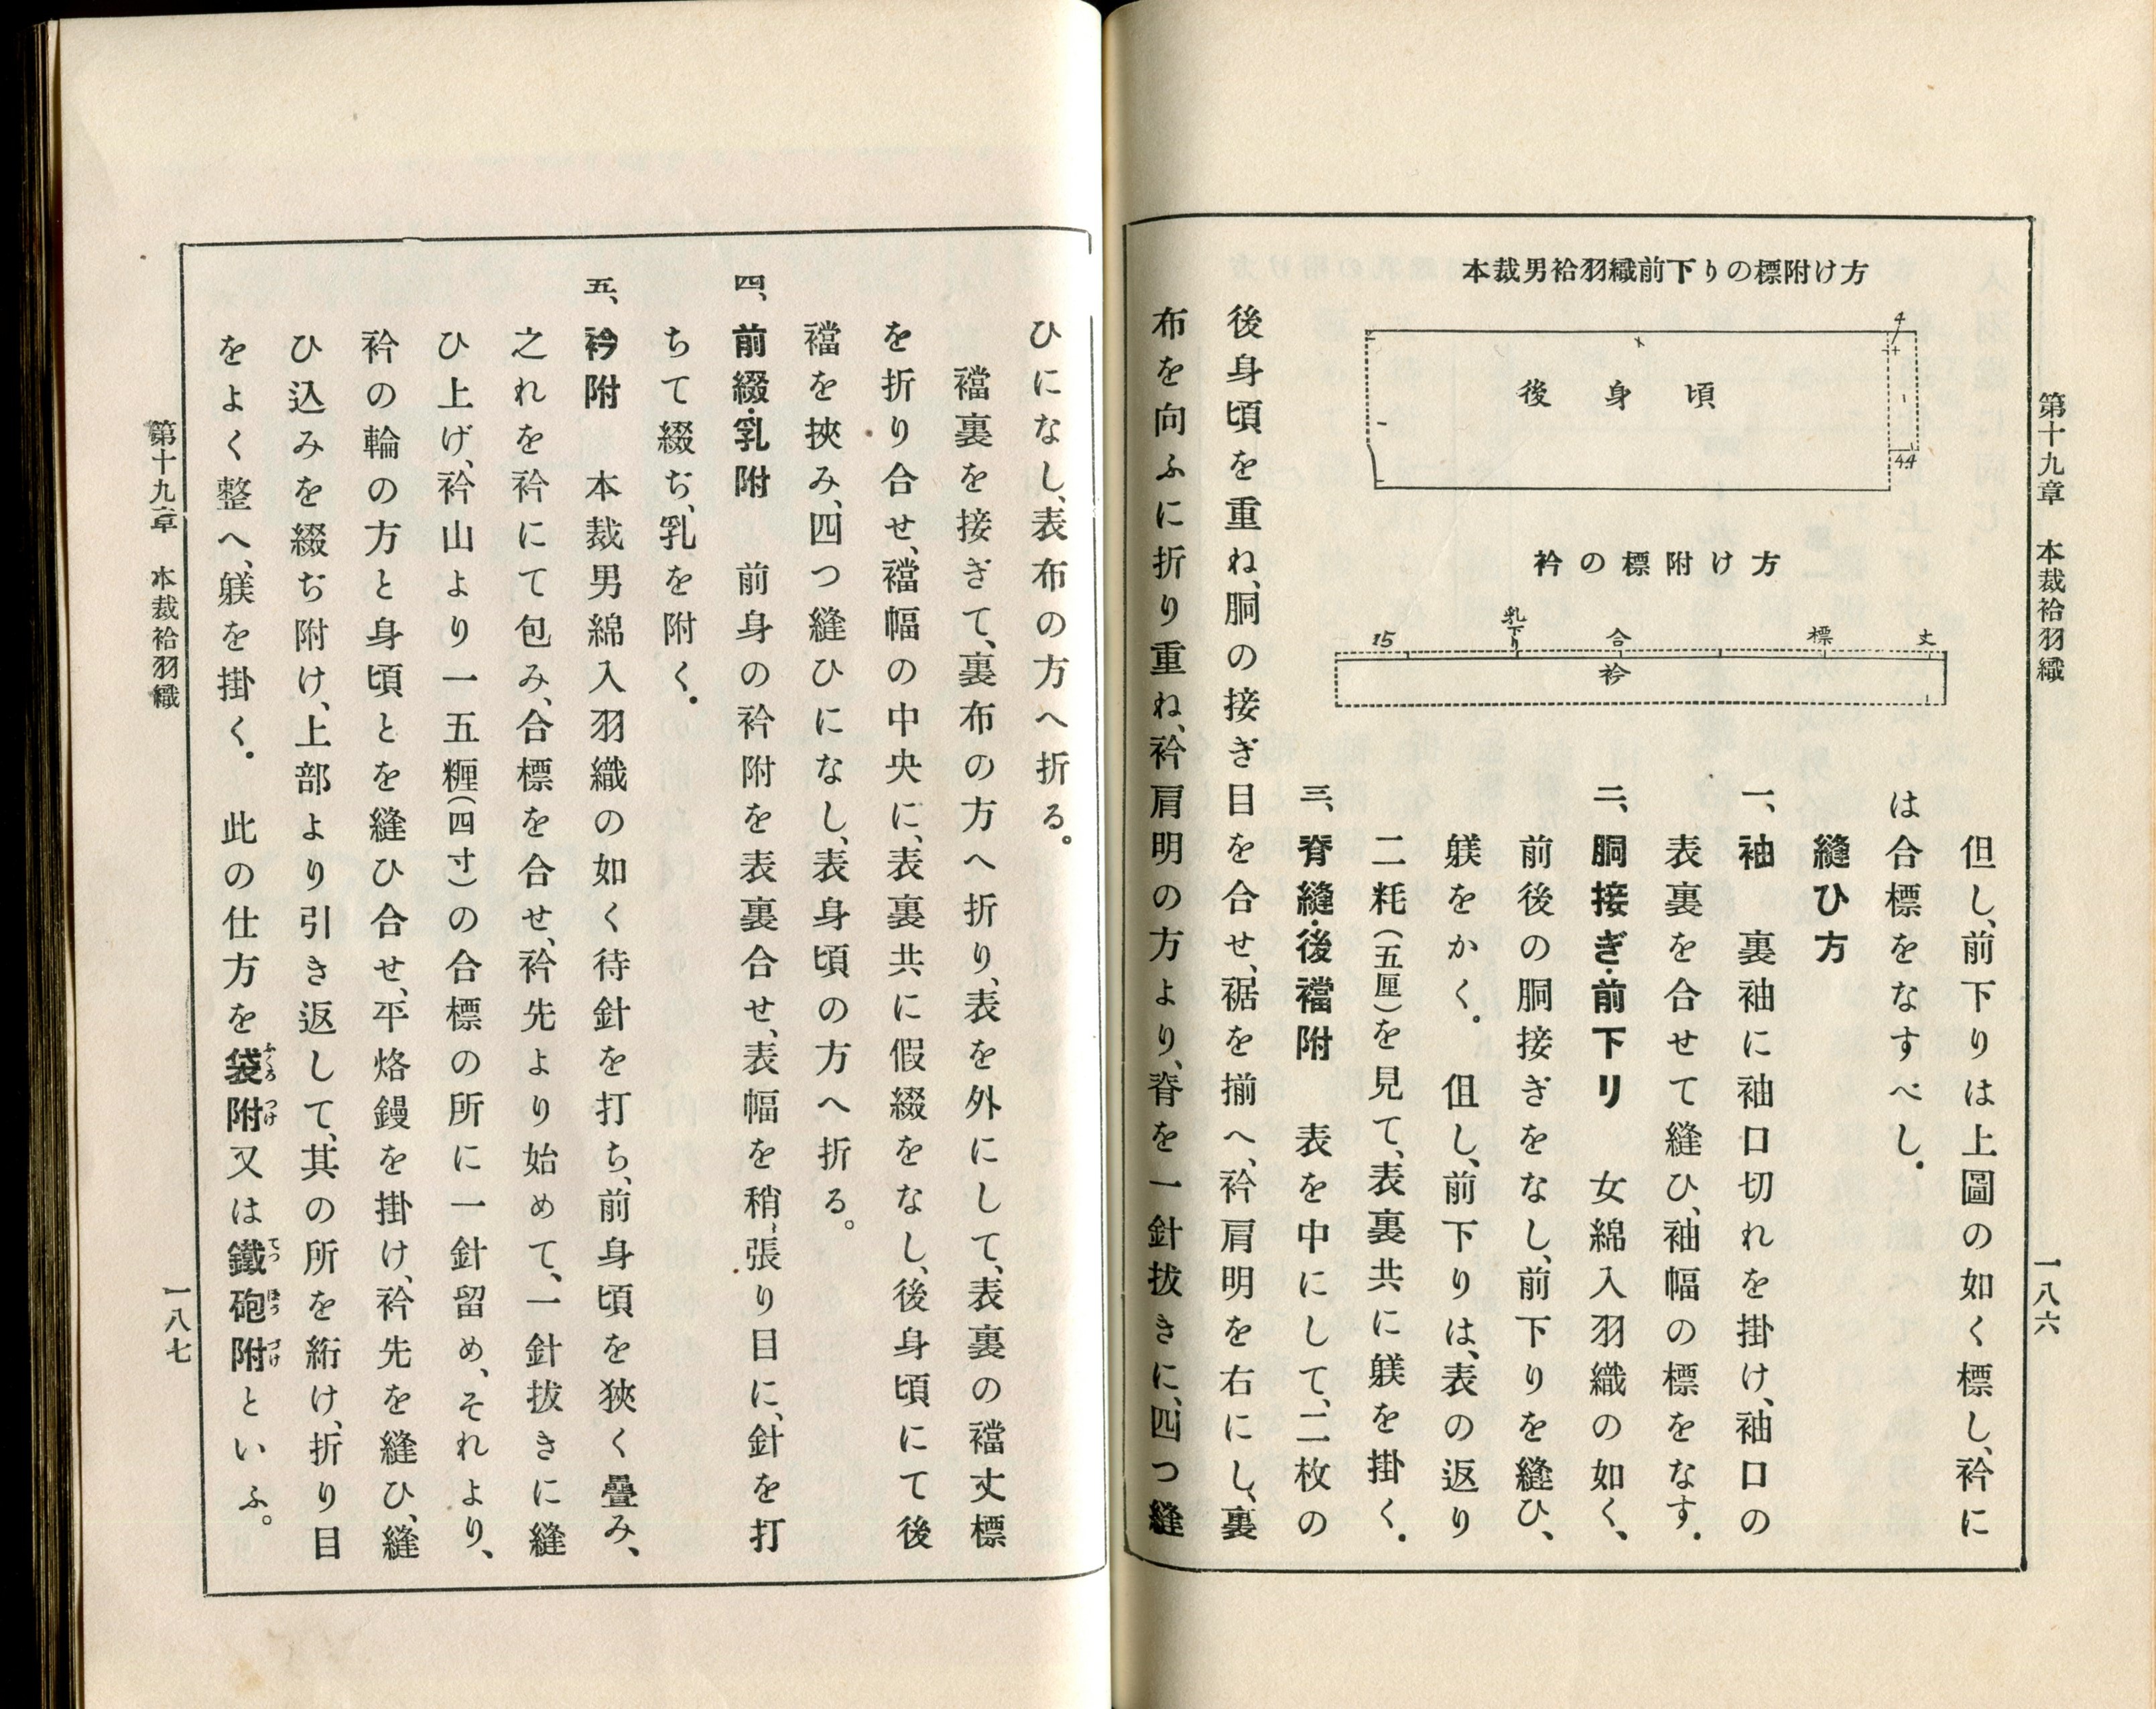 第十九章　本裁袷羽織
一八六
本裁男袷羽織前下りの標附け方
4
後身頃
44
衿の標附け方
15
乳下り
合
標
丈
衿
但し、前下りは上圖の如く標し、衿に
は合標をなすべし。
縫ひ方
一、袖　裏袖に袖口切れを掛け、袖口の
表裏を合せて縫ひ、袖幅の標をなす。
二、胴接ぎ・前下り　女綿入羽織の如く、
前後の胴接ぎをなし、前下りを縫ひ、
躾をかく。　但し、前下りは、表の返り
二粍(五厘)を見て、表裏共に躾を掛く。
三、脊縫・後襠附　表を中にして、二枚の
後身頃を重ね、胴の接ぎ目を合せ、裾を揃へ、衿肩明を右にし、裏
布を向ふに折り重ね、衿肩明の方より、脊を一針拔きに、四つ縫
ひになし、表布の方へ折る。
襠裏を接ぎて、裏布の方へ折り、表を外にして、表裏の襠丈標
を折り合せ、襠幅の中央に、表裏共に假綴をなし、後身頃にて後
襠を挾み、四つ縫ひになし、表身頃の方へ折る。
四、前綴・乳附　前身の衿附を表裏合せ、表幅を稍張り目に、針を打
ちて綴ぢ、乳を附く。
五、衿附　本裁男綿入羽織の如く待針を打ち、前身頃を狹く疊み、
之れを衿にて包み、合標を合せ、衿先より始めて、一針拔きに縫
ひ上げ、衿山より一五糎(四寸)の合標の所に一針留め、それより、
衿の輪の方と身頃とを縫ひ合せ、平烙鏝を掛け、衿先を縫ひ、縫
ひ込みを綴ぢ附け、上部より引き返して、其の所を絎け、折り目
をよく整へ、躾を掛く。　此の仕方を袋附又は鐵砲附といふ。
ふくろつけ
てつぽうづけ
第十九章　本裁袷羽織
一八七